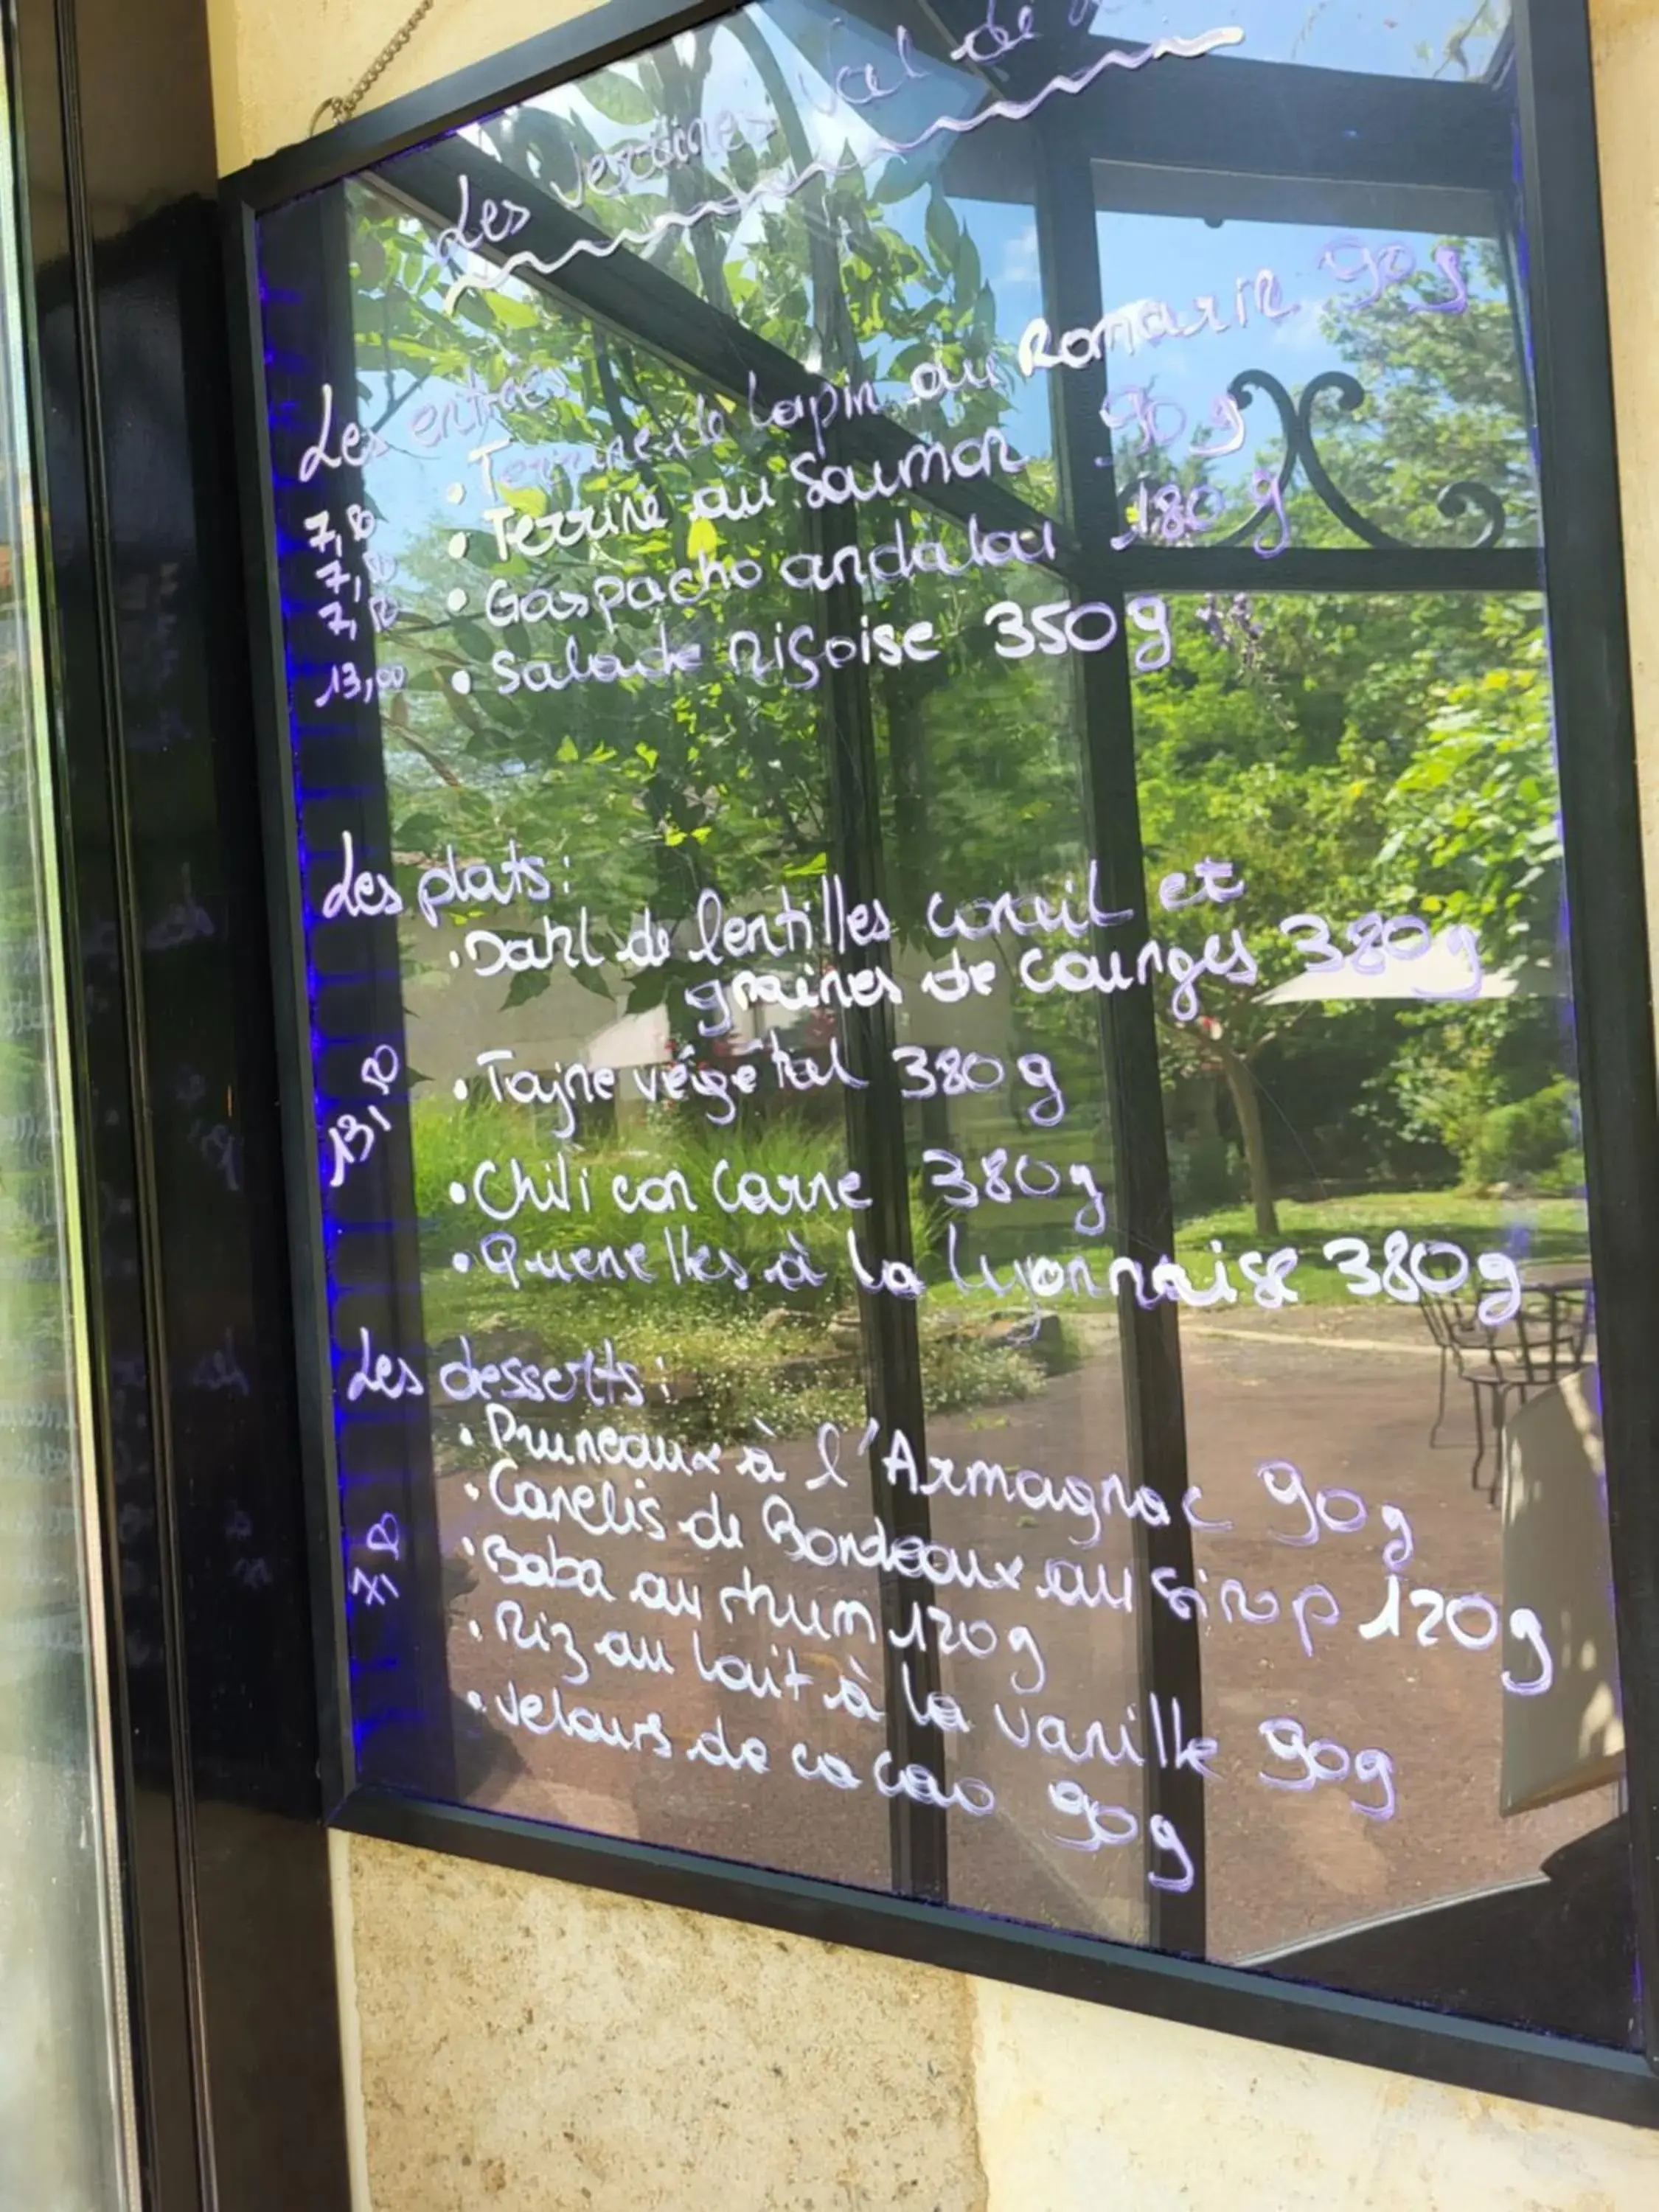 Les Verrines Val de
Les entrées
7,50 • Terrine de Lapin au Romarin 90g
7,50 • Terrine au Saumon 90g
7,50 • Gaspacho andalou 180g
13,00 • Salade niçoise 350g
Les plats:
• Dahl de lentilles corail et
graines de courges 380g
13,50
• Tajine végétal 380g
• Chili con Carne 380g
• Quenelles à la lyonnaise 380g
Les desserts:
• Pruneaux à l'Armagnac 90g
• Canelés de Bordeaux au sirop 120g
7,50
• Baba au rhum 120g
• Riz au lait à la vanille 90g
• Velours de cacao 90g